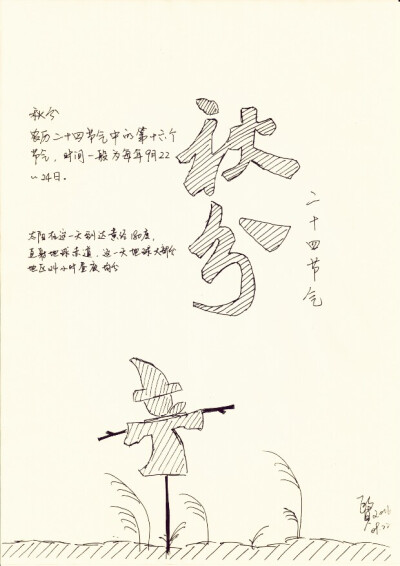 秋分
农历二十四节气中的第十六个
节气，时间一般为每年9月22
~24日。
太阳在这一天到达黄经180度，
直射地球赤道，这一天地球大部分
地区24小时昼夜均分
秋分
二十四节气